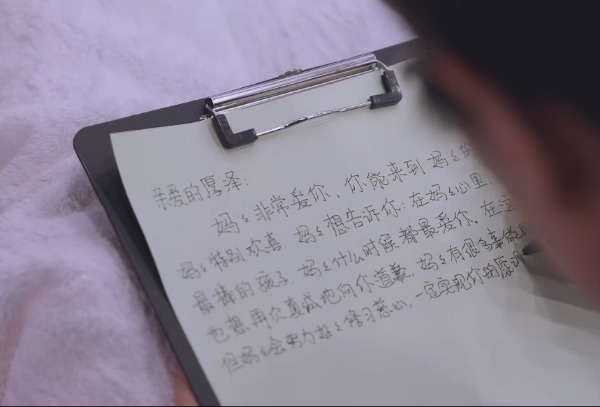 亲爱的厚泽:
妈妈非常爱你,你能来到妈妈的
妈妈特别欢喜.妈妈想告诉你:在妈妈心里,
最棒的孩子.妈妈什么时候都最爱你.在这
也想再次真诚地向你道歉.妈妈有很多事做
但妈妈会努力 修习慈心,一定实现你的愿